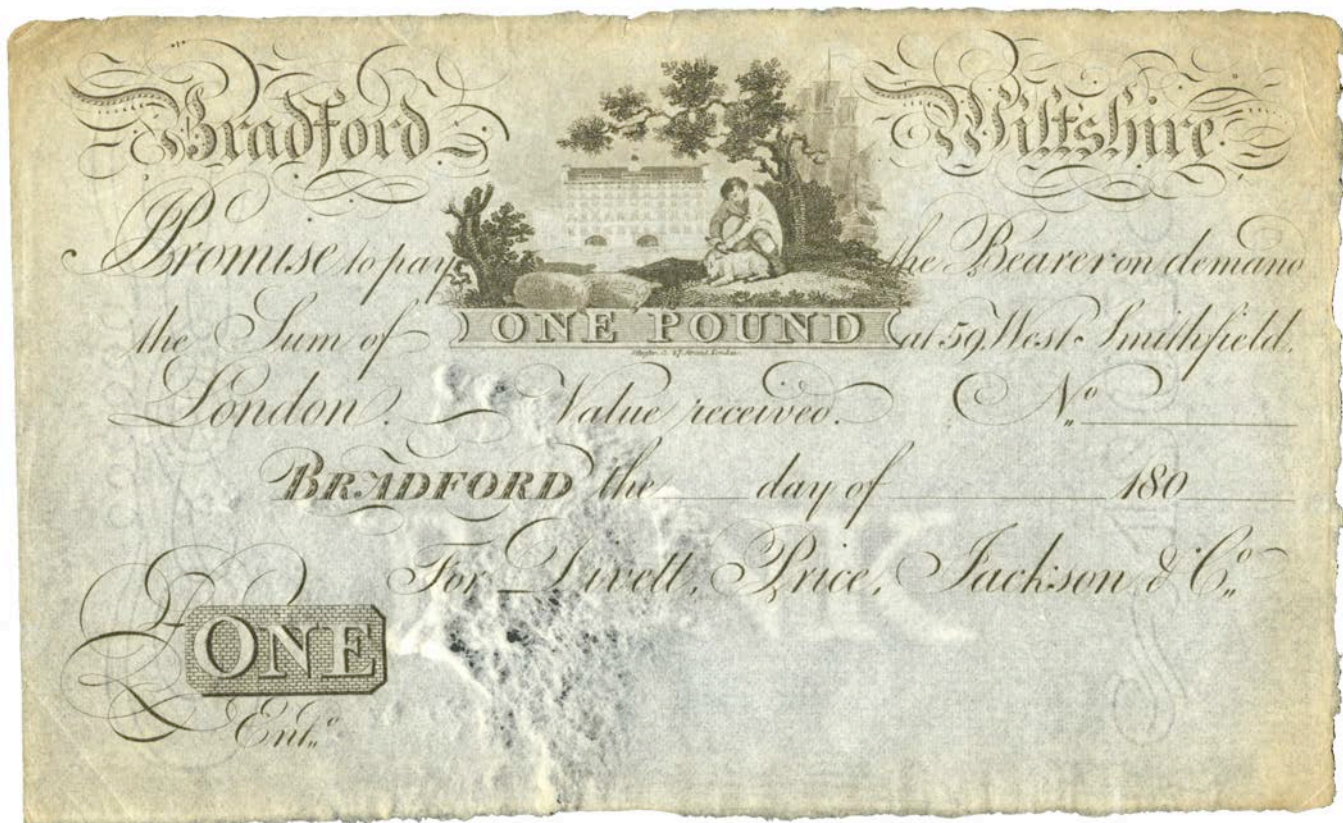 Bradford Wiltshire
I Promise to pay the Bearer on demand
the Sum of ONE POUND at 59, West Smithfield,
London. Value received. Nº
BRADFORD the day of 180
For Divett, Price, Jackson & Cº
£ ONE
Entº